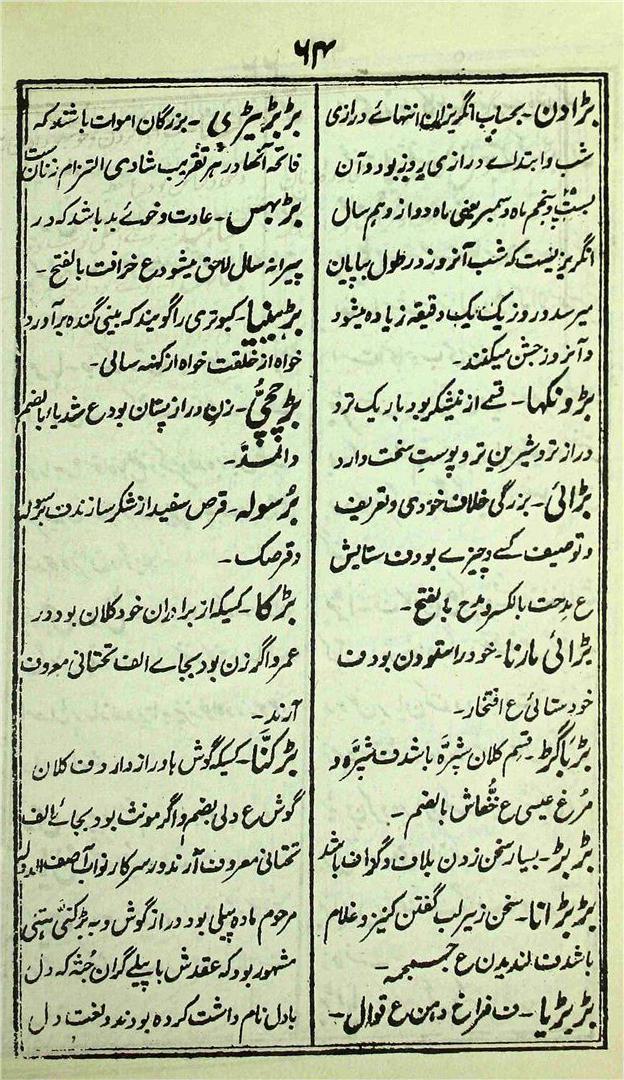 ۶۴
بڑا دن۔ بحساب انگریزان انتہائے درازی
شب و ابتداے درازی روز بود و آن
بست و پنجم ماه دسمبر یعنی ماه دوازدهم سال
انگریزیست که شب آنروز در طول بپایان
میرسد و روز یک یک دقیقه زیاده میشود
و آنروز جشن میکنند۔
بڑونکھا۔ قسمے از نیشکر بود باریک ترو
دراز ترو شیرین ترو پوست سخت دارد
بڑائی۔ بزرگی خلاف خوردی و تعریف
و توصیف کسے و چیزے بود ف ستایش
ع مدحت بالکسر و مدح بالفتح۔
بڑائی مارنا۔ خود را ستودن بود ف
خودستائی ع افتخار۔
بڑباگڑ۔ قسم کلان شپرّه باشد ف شپرّه و
مرغ عیسی ع خُفّاش بالضم۔
بڑبڑ۔ بسیار سخن زدن بلاف و گزاف باشد
بڑبڑانا۔ سخن زیر لب گفتن کنیز و غلام
باشد ف لندیدن ع جمجمه۔
بڑبڑیا۔ ف فراخ دهن ع قوال۔
بڑبڑیڑی۔ بزرگان اموات باشند که
فاتحه آنها در هر تقریب شادی التزام زنان ست
بڑبھس۔ عادت و خوے بد باشد که در
پیرانه سال لاحق میشود ع خرافت بالفتح۔
بڑھینیا۔ کبوتری را گویند که بینی گنده برآورد
خواه از خلقت خواه از کهنه سالی۔
بڑچچی۔ زن دراز پستان بود ع ثدیاء بالضم
والمدّ۔
بُرسوله۔ قرص سفید از شکر سازند ف
و قرصک۔
بڑکا۔ کسیکه از برادران خود کلان بود در
عمر و اگر زن بود بجاے الف تحتانی معروف
آرند۔
بڑکنّا۔ کسیکه گوش باور از دارد ف کلان
گوش ع دلی بضم و اگر مونث بود بجائے الف
تحتانی معروف آرند و در سرکار نواب آصف الدوله
مرحوم ماده پیلی بود دراز گوش و به بڑکنّی هتنی
مشهور بود که عقدش با پیلے گران جُثّه که دل
بادل نام داشت کرده بودند و لغت دل